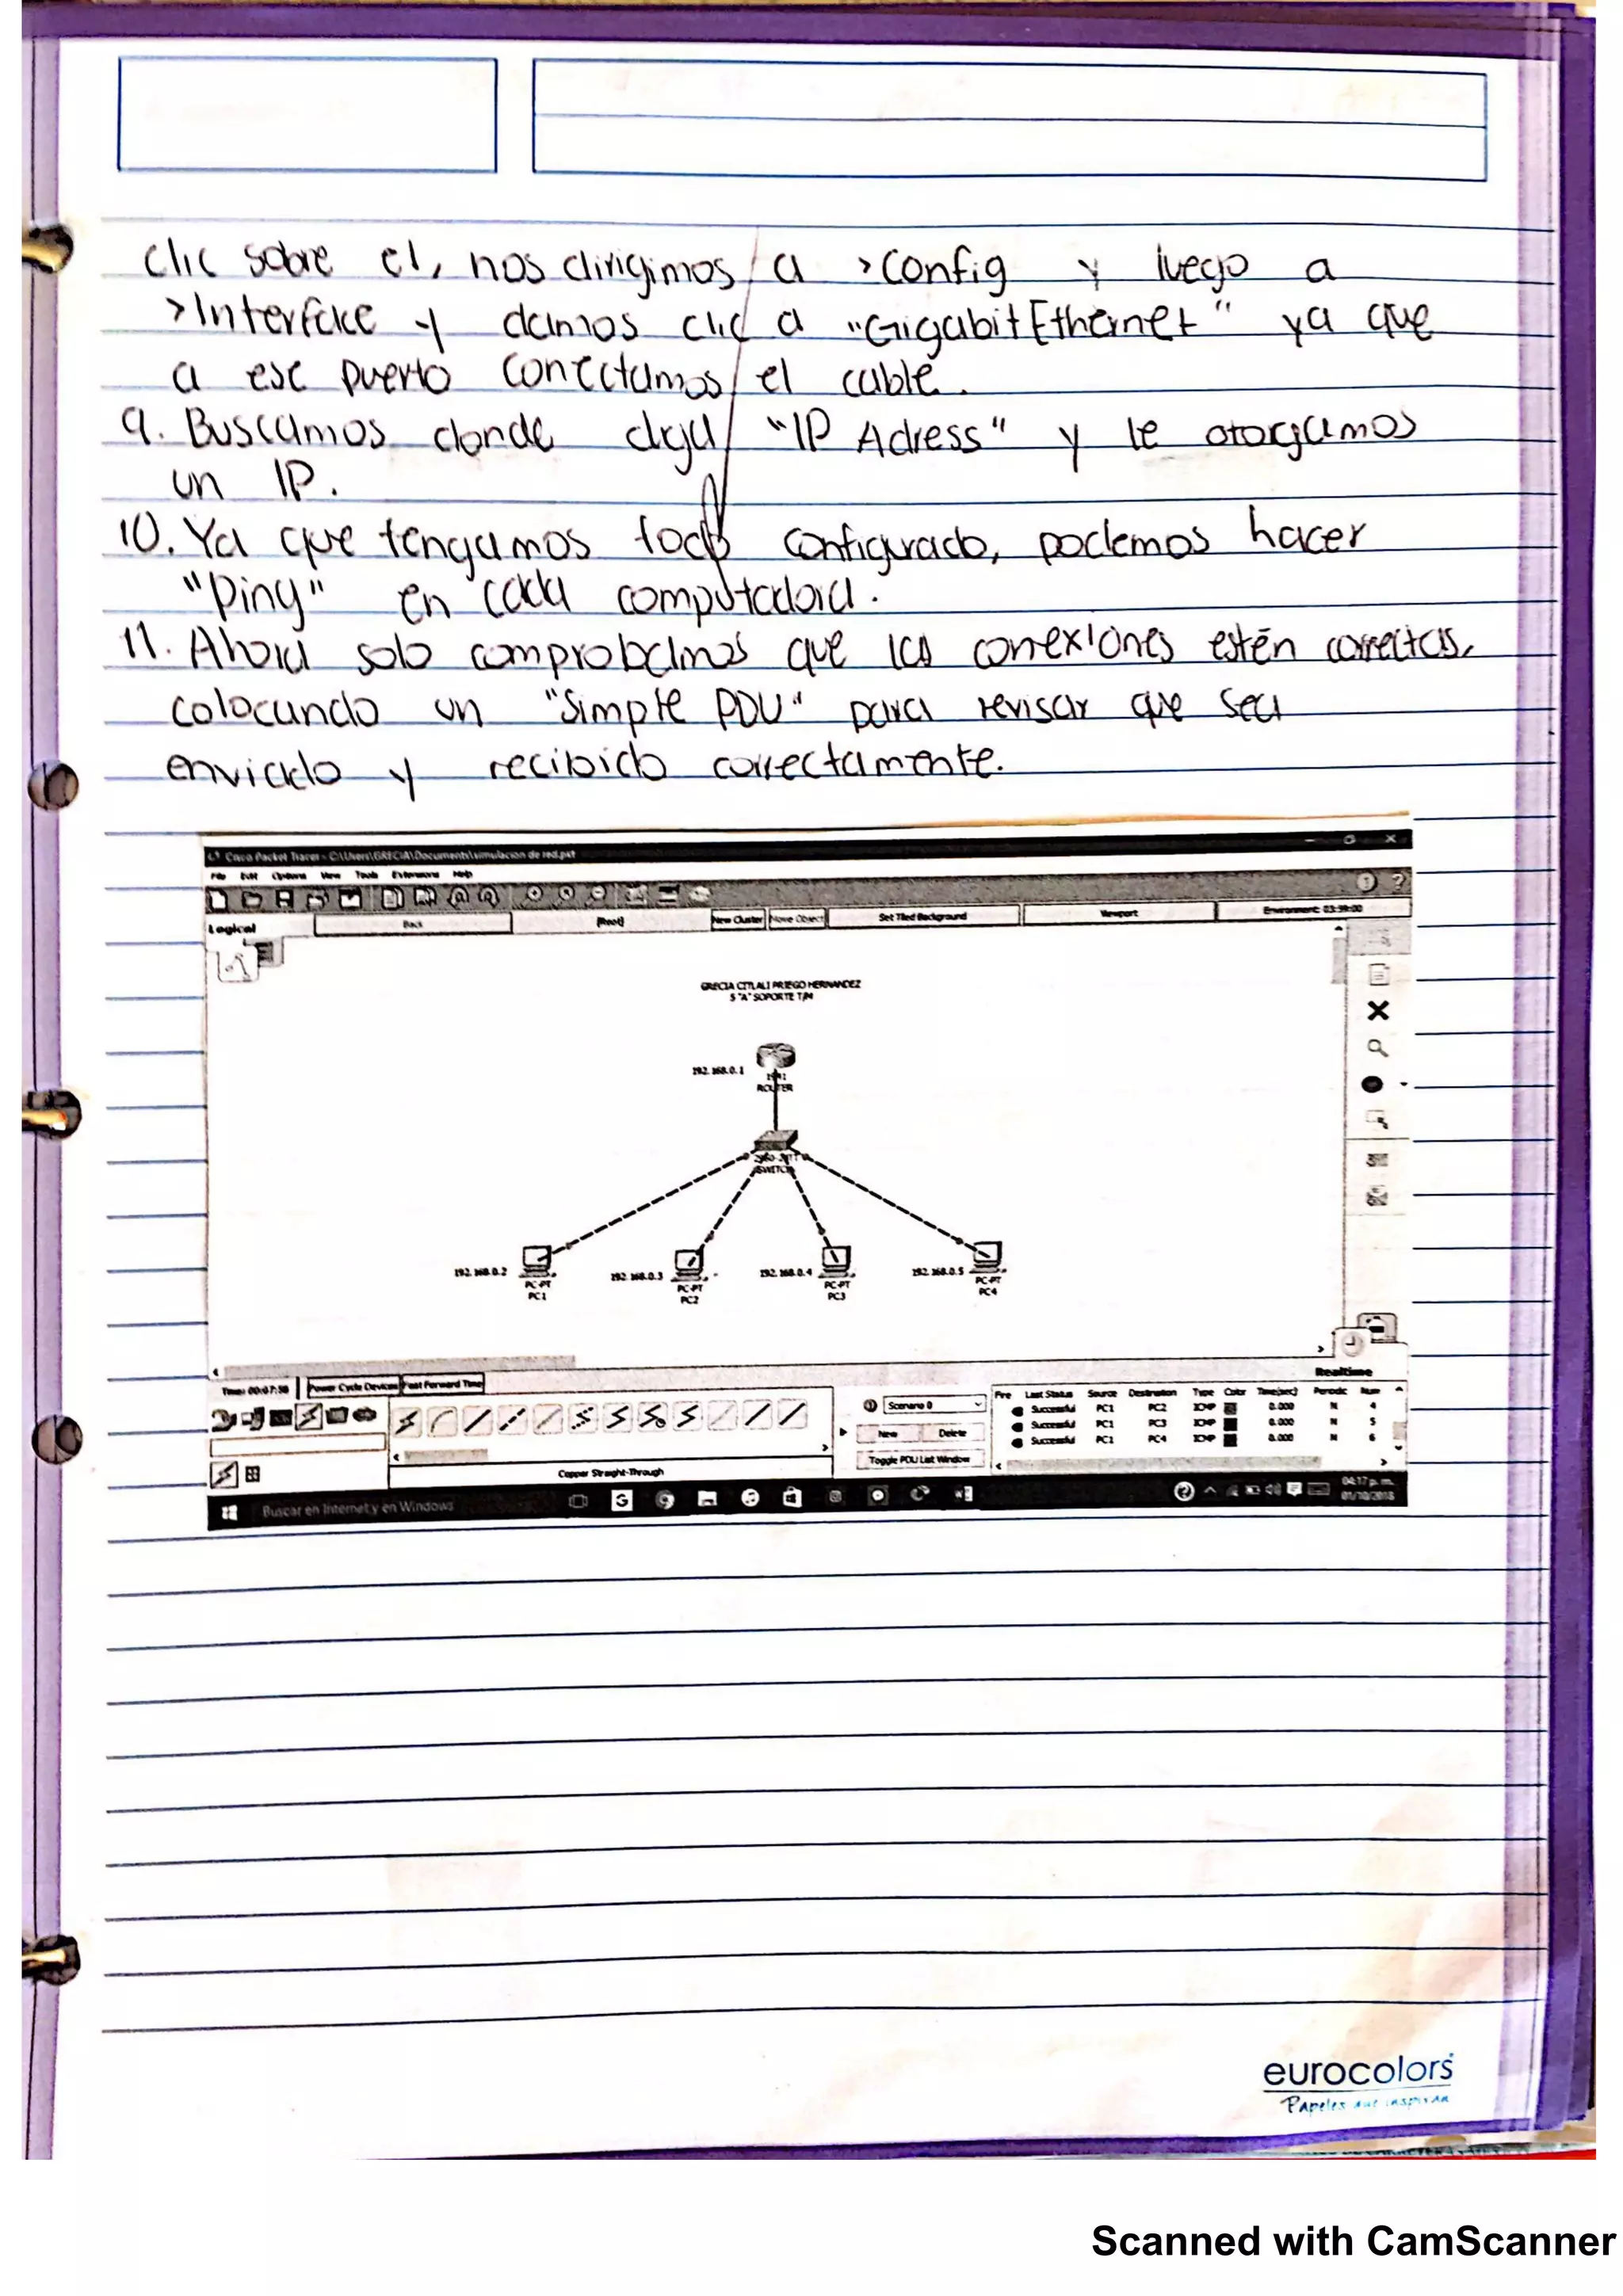 clic sobre el, nos dirigimos a >Config y luego a
>Interface y damos clic a "GigabitEthernet" ya que
a ese puerto conectamos el cable.
9. Buscamos donde diga "IP Adress" y le otorgamos
un IP.
10. Ya que tengamos todo configurado, podemos hacer
"Ping" en cada computadora.
11. Ahora solo comprobamos que las conexiones estén correctas,
colocando un "Simple PDU" para revisar que sea
enviado y recibido correctamente.
Cisco Packet Tracer - C:\Users\GRECIA\Documents\simulacion de red.pkt
File Edit Options View Tools Extensions Help
Logical Back [Root] New Cluster Move Object Set Tiled Background Viewport Environment: 03:59:00
GRECIA CITLALI PRIEGO HERNANDEZ
5 "A" SOPORTE T/M
192.168.0.1
1941
ROUTER
SWITCH
192.168.0.2
PC-PT
PC1
192.168.0.3
PC-PT
PC2
192.168.0.4
PC-PT
PC3
192.168.0.5
PC-PT
PC4
Realtime
Time: 00:07:58 Power Cycle Devices Fast Forward Time
Scenario 0
New Delete
Toggle PDU List Window
Fire Last Status Source Destination Type Color Time(sec) Periodic Num
Successful PC1 PC2 ICMP 0.000 N 4
Successful PC1 PC3 ICMP 0.000 N 5
Successful PC1 PC4 ICMP 0.000 N 6
Copper Straight-Through
Buscar en Internet y en Windows
04:17 p. m.
01/10/2018
eurocolors
Papeles que inspiran
Scanned with CamScanner